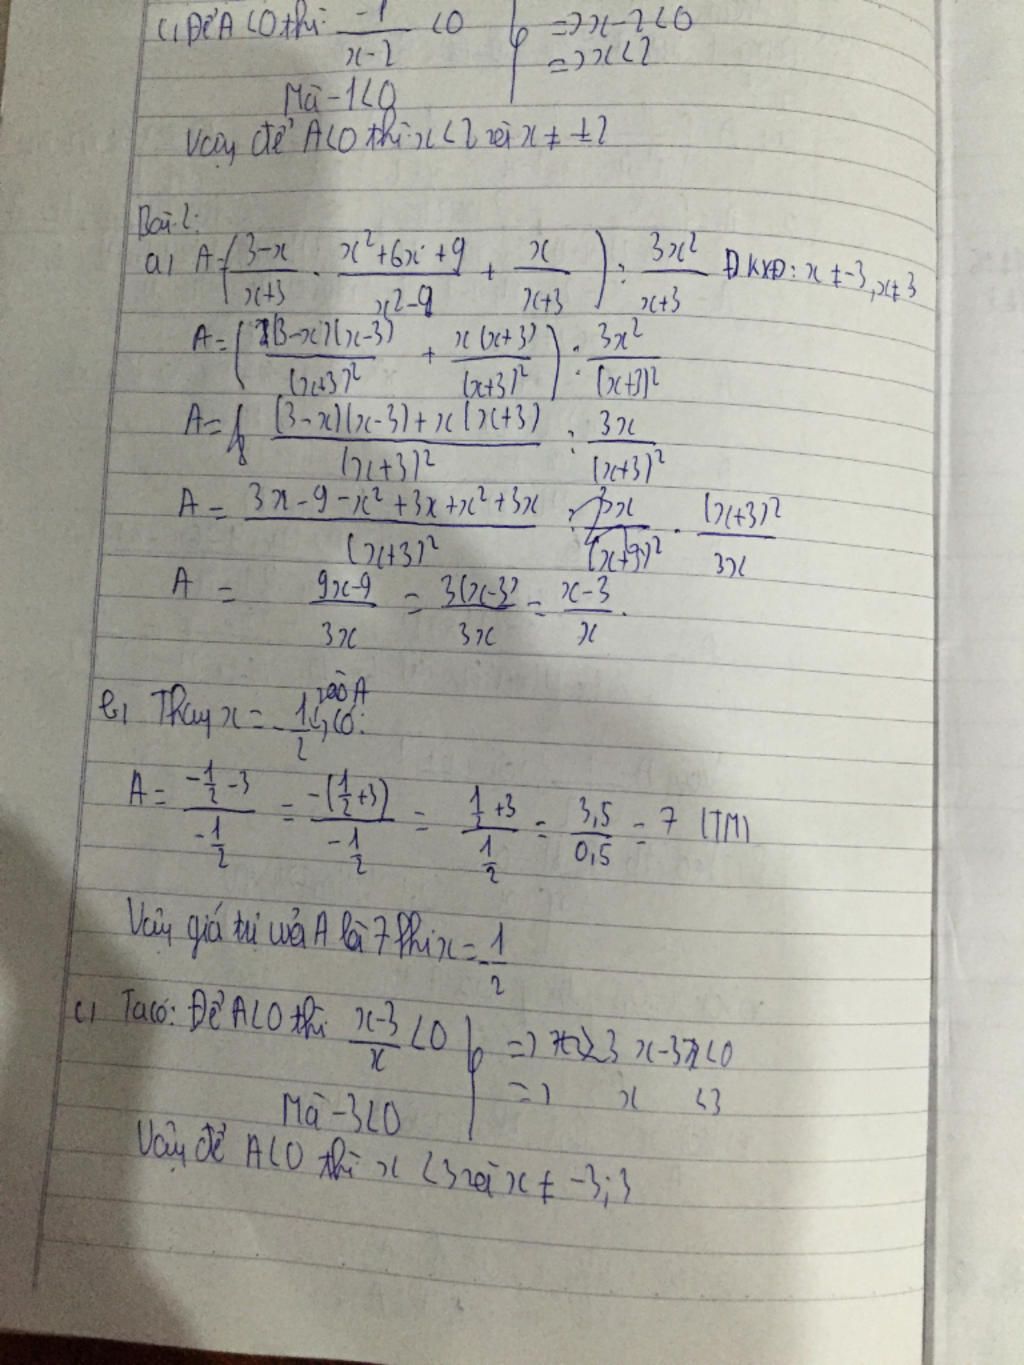 c, Để A<0 thì -1/(x-2) <0 | => x-2<0
=> x<2
Mà -1<0
Vậy để A<0 thì x<2 và x ≠ ±2
Bài 2:
a, A=((3-x)/(x+3) · (x²+6x+9)/(x²-9) + x/(x+3)) : 3x²/(x+3) ĐKXĐ: x≠-3, x≠3
A=((3-x)(x-3)/(x+3)² + x(x+3)/(x+3)²) : 3x²/(x+3)²
A= ((3-x)(x-3)+x(x+3))/(x+3)² : 3x/(x+3)²
A= (3x-9-x²+3x+x²+3x)/(x+3)² · (x+3)²/3x
A = (9x-9)/3x = 3(x-3)/3x = (x-3)/x.
b, Thay x = -1/2 vào A, có:
A= (-1/2 -3)/(-1/2) = -(1/2+3)/(-1/2) = (1/2+3)/(1/2) = 3,5/0,5 = 7 (TM)
Vậy giá trị của A là 7 khi x = -1/2
c, Ta có: Để A<0 thì (x-3)/x <0 | => x-3<0
=> x <3
Mà -3<0
Vậy để A<0 thì x <3 và x ≠ -3; 3